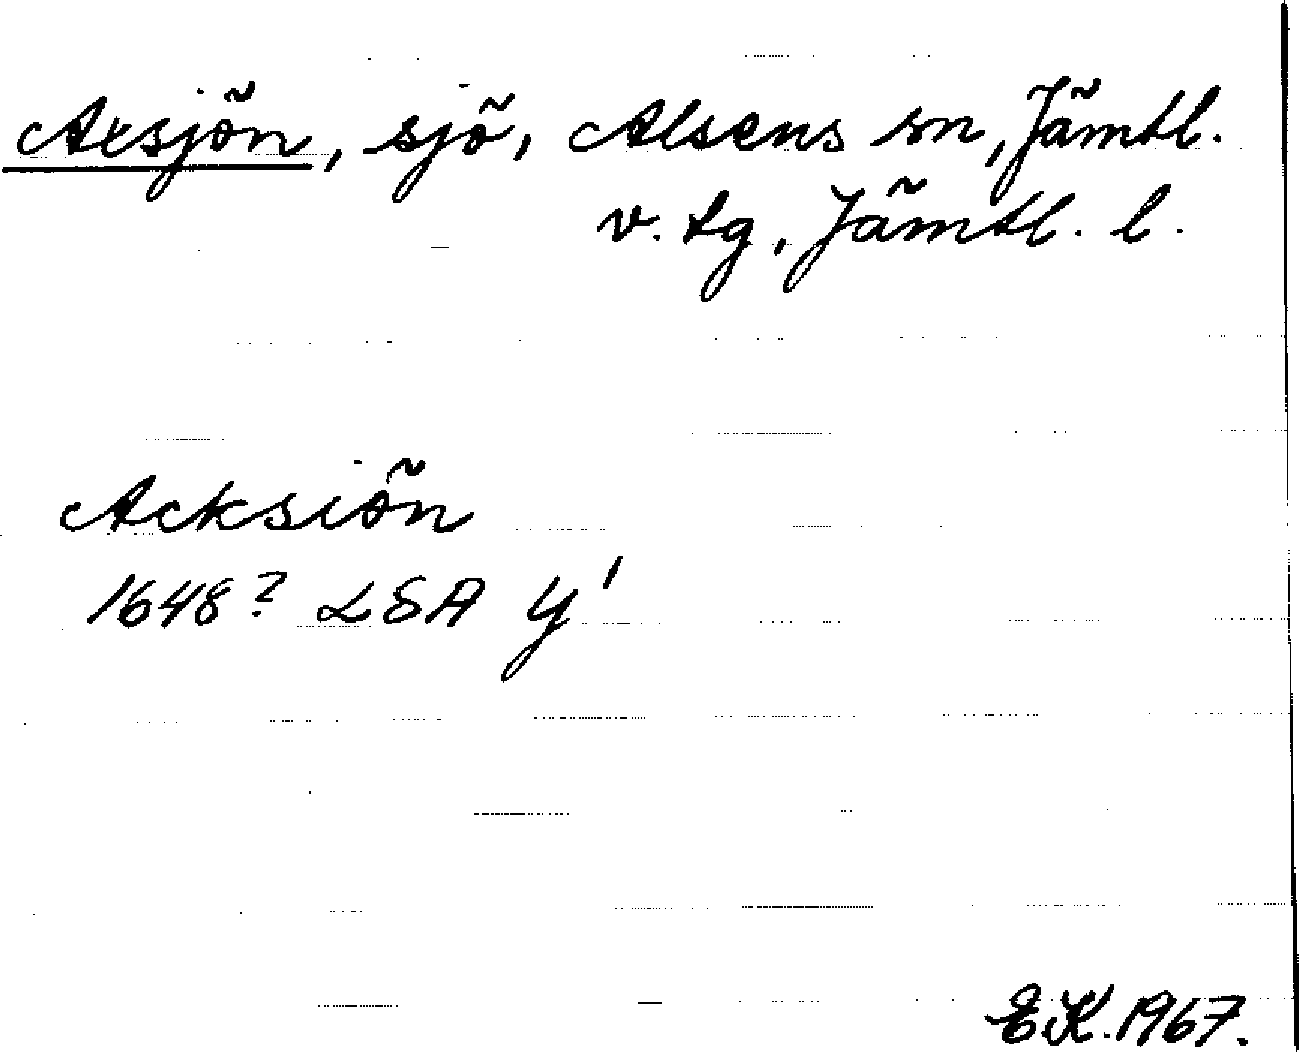 Axsjön, sjö, Alsens sn, Jämtl.
v. tg, Jämtl. l.
Acksiön
1648? LSA Y¹
E.K. 1967.